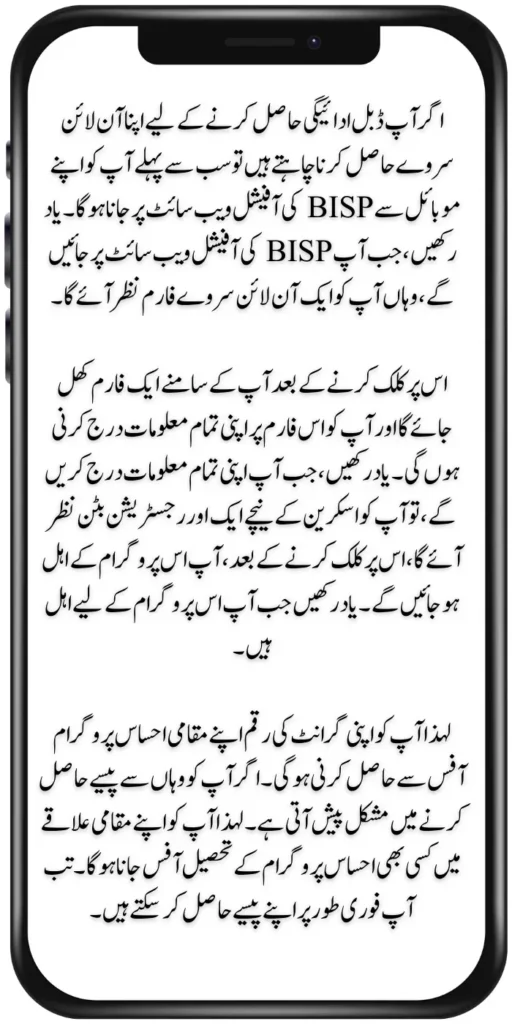 اگر آپ ڈبل ادائیگی حاصل کرنے کے لیے اپنا آن لائن
سروے حاصل کرنا چاہتے ہیں تو سب سے پہلے آپ کو اپنے
موبائل سے BISP کی آفیشل ویب سائٹ پر جانا ہو گا۔ یاد
رکھیں، جب آپ BISP کی آفیشل ویب سائٹ پر جائیں
گے، وہاں آپ کو ایک آن لائن سروے فارم نظر آئے گا۔
اس پر کلک کرنے کے بعد آپ کے سامنے ایک فارم کھل
جائے گا اور آپ کو اس فارم پر اپنی تمام معلومات درج کرنی
ہوں گی۔ یاد رکھیں، جب آپ اپنی تمام معلومات درج کریں
گے، تو آپ کو اسکرین کے نیچے ایک اور رجسٹریشن بٹن نظر
آئے گا، اس پر کلک کرنے کے بعد، آپ اس پروگرام کے اہل
ہو جائیں گے۔ یاد رکھیں جب آپ اس پروگرام کے لیے اہل
ہیں۔
لہذا آپ کو اپنی گرانٹ کی رقم اپنے مقامی احساس پروگرام
آفس سے حاصل کرنی ہو گی۔ اگر آپ کو وہاں سے پیسے حاصل
کرنے میں مشکل پیش آتی ہے۔ لہذا آپ کو اپنے مقامی علاقے
میں کسی بھی احساس پروگرام کے تحصیل آفس جانا ہو گا۔ تب
آپ فوری طور پر اپنے پیسے حاصل کر سکتے ہیں۔